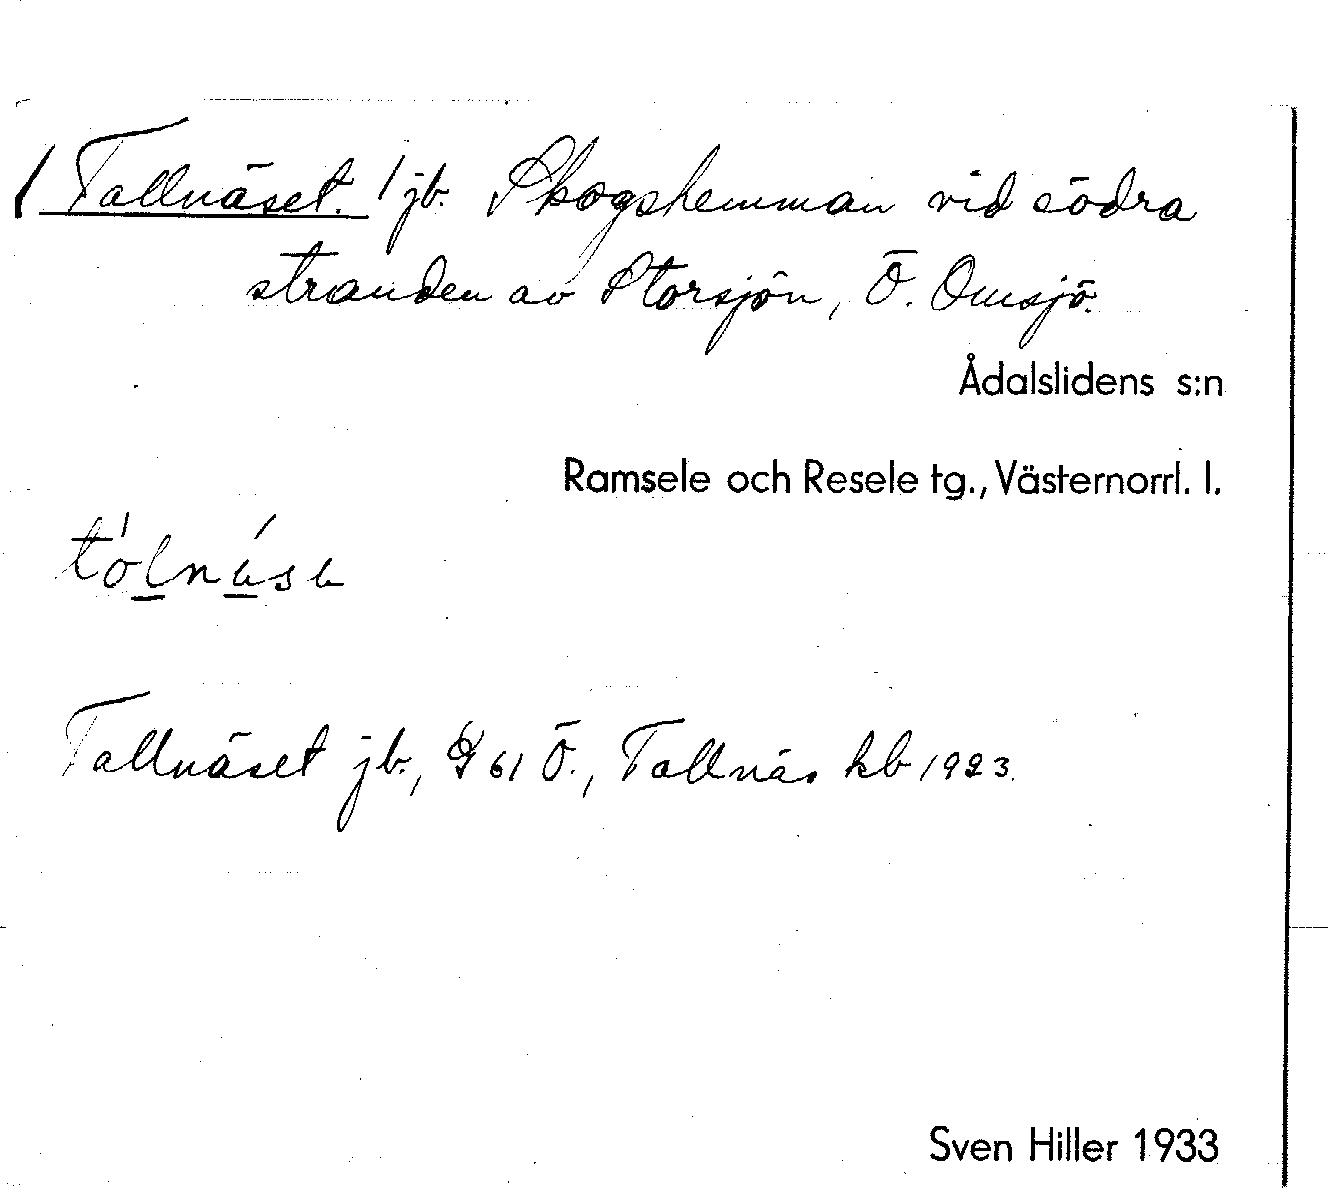 / Tallnäset. / jb. Skogshemman vid södra
stranden av Storsjön, Ö. Omsjö.
Ådalslidens s:n
Ramsele och Resele tg., Västernorrl. l.
Tallnäset jb., G 61 Ö., Tallnäs kb 1923.
Sven Hiller 1933